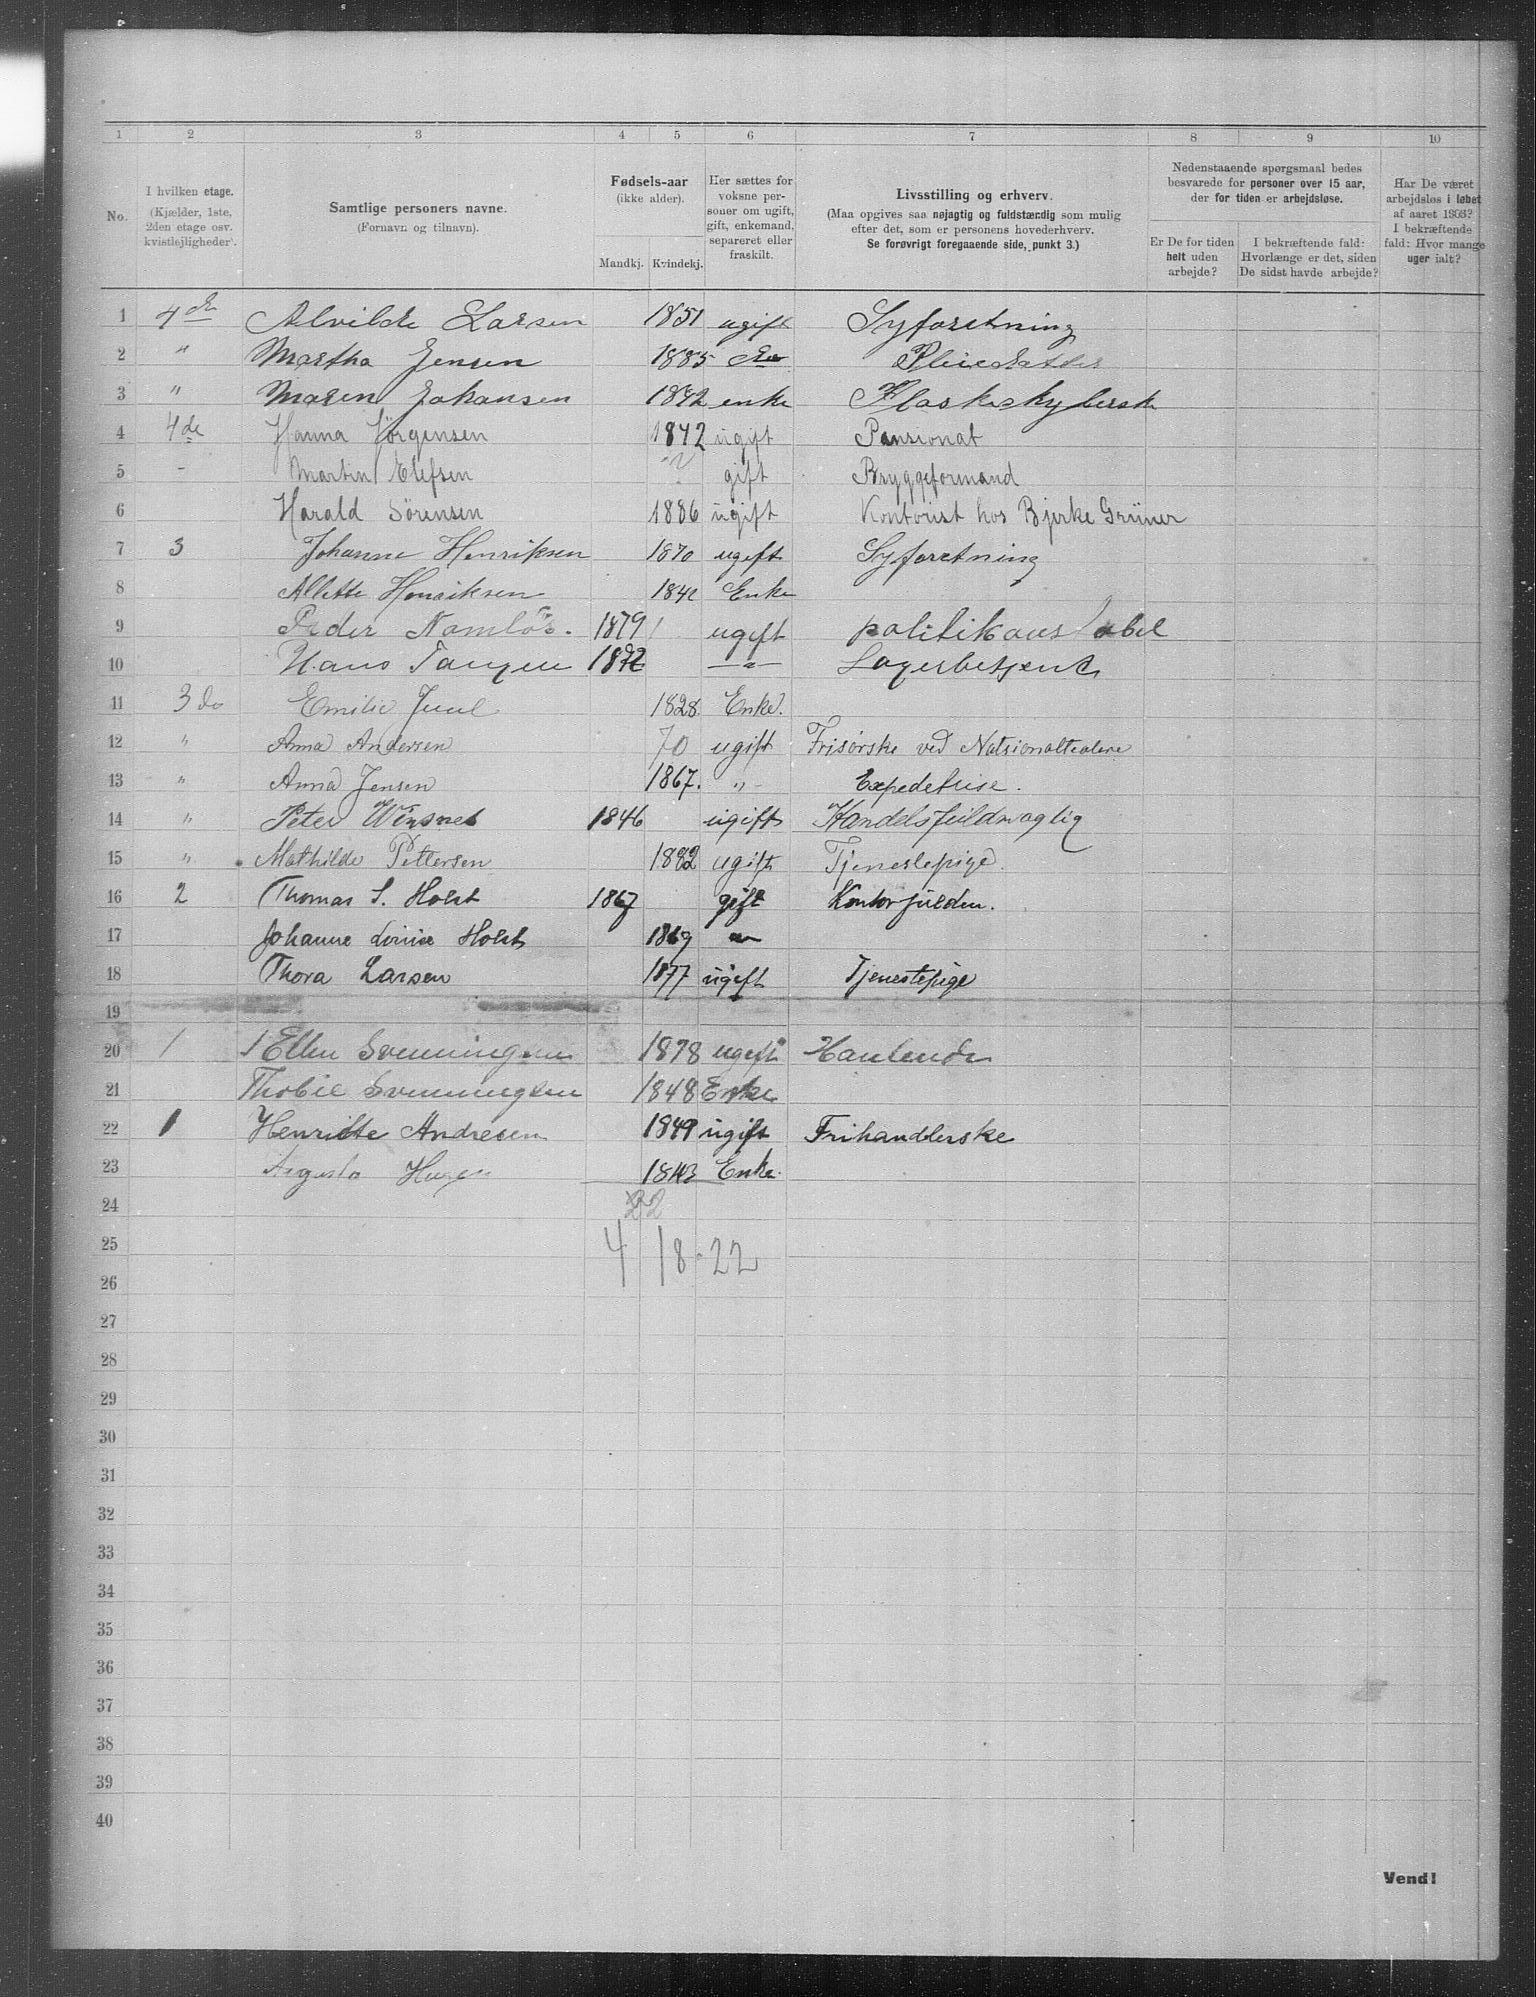 1 2 3 4 5 6 7 8 9 10
No.
I hvilken etage.
(Kjælder, 1ste,
2den etage osv.
kvistlejligheder).
Samtlige personers navne.
(Fornavn og tilnavn).
Fødsels-aar
(ikke alder).
Mandkj. Kvindekj.
Her sættes for
voksne per-
soner om ugift,
gift, enkemand,
separeret eller
fraskilt.
Livsstilling og erhverv.
(Maa opgives saa nøjagtig og fuldstændig som mulig
efter det, som er personens hovederhverv.
Se forøvrigt foregaaende side, punkt 3.)
Nedenstaaende spørgsmaal bedes
besvarede for personer over 15 aar,
der for tiden er arbejdsløse.
Er De for tiden
helt uden
arbejde?
I bekræftende fald:
Hvorlænge er det, siden
De sidst havde arbejde?
Har De været
arbejdsløs i løbet
af aaret 1903?
I bekræftende
fald: Hvor mange
uger ialt?
1 4de Alvilde Larsen 1851 ugift Syforetning
2 " Martha Jensen 1885 do
3 " Maren Johansen 1842 enke
4 4de Hanna Jørgensen 1842 ugift Pansionat
5 - Martin Elefsen ? gift Bryggeformand
6 Harald Sörensen 1886 ugift Kontorist hos Bjerke Grüner
7 3 Johanne Henriksen 1870 ugeft Syforetning
8 Allette Henriksen 184 Enke
9 Peder 1879 ugeft
10 Hans Tangen 1872 — " — Lagerbetjent
11 3 do Emilie Juul 1828 Enke.
12 " Anna Andersen 70 ugift Frisørske ved Natsionalteatere
13 " Anna Jensen 1867. " Expedetrise.
14 " Peter Winsnes 1846 ugift Handelsfuldmægtig
15 " Mathilde Pettersen 1882 ugift Tjenestepige.
16 2 Thomas S. Holst 1867 gift
17 Johanne Lovise Holst 1869 "
18 Thora Larsen 1877 ugeft Tjenestepige
19
20 1 Ellen Svenningsen 1878 ugeft
21 Svenningsen 1848 Enke
22 1 Henriette Andresen 1849 ugift Frihandlerske
23 Augusta 1843 Enke.
24 22
25 4 18 - 22
26
27
28
29
30
31
32
33
34
35
36
37
38
39
40
Vend!